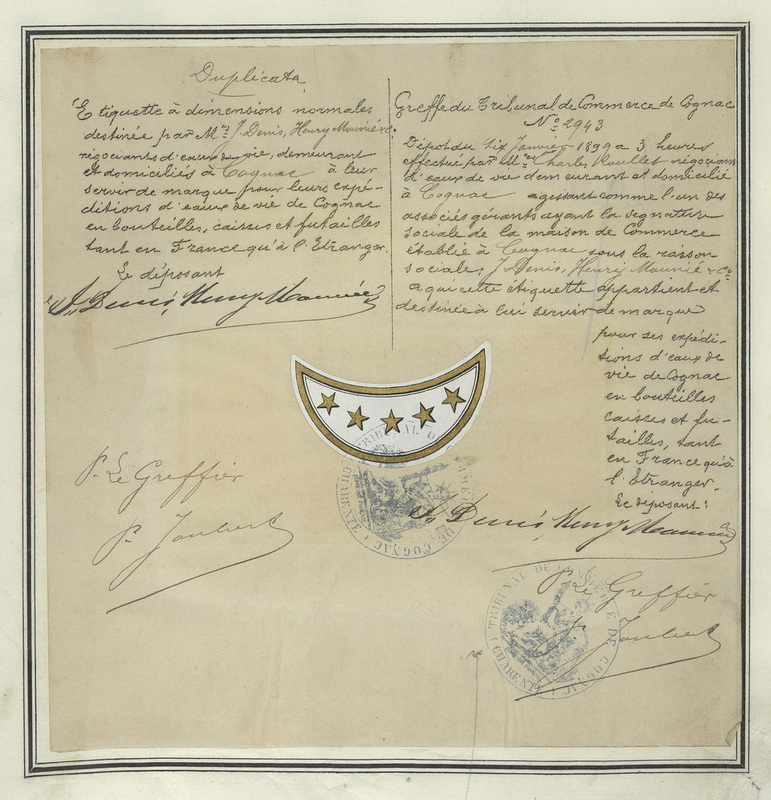 Duplicata
Etiquette à dimensions normales
destinée par Mrs J. Denis, Henry Mounié & Co
négociants d'eaux de vie, demeurant
et domiciliés à Cognac à leur
servir de marque pour leurs expé-
ditions d'eaux de vie de Cognac
en bouteilles, caisses et futailles
tant en France qu'à l'Etranger.
Le déposant
J. Denis, Henry Mounié & Co
P. Le Greffier
P. Joubert
Greffe du Tribunal de Commerce de Cognac
No 2943
Dépôt du six Janvier 1899 à 3 heures
effectué par Mr Charles Roullet négociant
d'eaux de vie demeurant et domicilié
à Cognac agissant comme l'un des
associés gérants ayant la signature
sociale de la maison de Commerce
établie à Cognac sous la raison
sociale: J. Denis, Henry Mounié & Co
a qui cette étiquette appartient et
destinée à lui servir de marque
pour ses expédi-
tions d'eaux de
vie de Cognac
en bouteilles
caisses et fu-
tailles, tant
en France qu'à
l'Etranger.
Le déposant:
J. Denis, Henry Mounié & Co
P. Le Greffier
P. Joubert
TRIBUNAL DE COMMERCE DE COGNAC (CHARENTE)
TRIBUNAL DE COMMERCE DE COGNAC (CHARENTE)